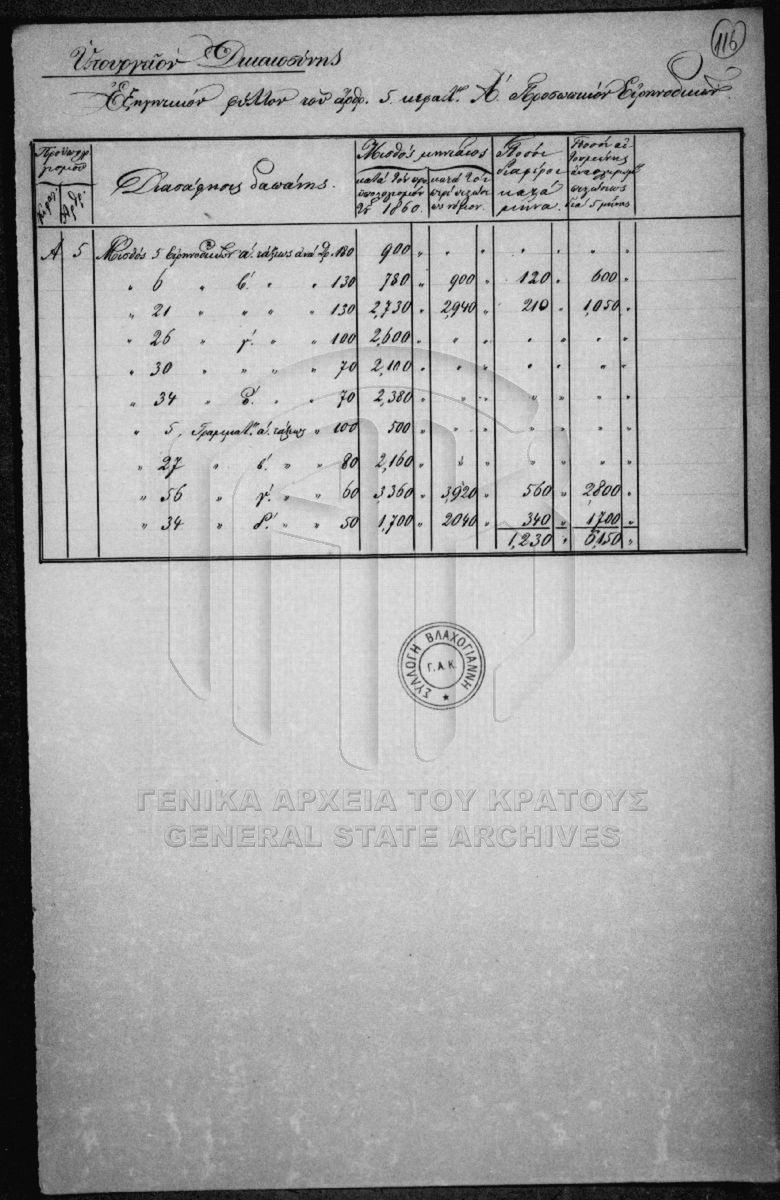 116
Ὑπουργεῖον Δικαιοσύνης
Ἐξηγητικὸν φύλλον τοῦ ἄρθρ. 5. κεφαλ. Α΄. Προσωπικὸν Εἰρηνοδικῶν.
Μισθὸς μηνιαῖος
Διασάφησις δαπάνης.
Κεφ. Ἄρθρ. κατὰ τὸν προϋπολογισμὸν τοῦ 1860. κατὰ τὸν
Ποσὸν διαφορᾶς κατὰ μῆνα.
διὰ 5 μῆνας
Α 5 Μισθὸς 5 Εἰρηνοδικῶν α΄. τάξεως ἀνὰ Δρ. 180 900 " " " " " " "
" 6 " β΄. " " 130 780 " 900 " 120 " 600 "
" 21 " " " " 130 2,730 " 2,940 " 210 " 1,050 "
" 26 " γ΄. " " 100 2,600 " " " " " " "
" 30 " " " " 70 2,100 " " " " " " "
" 34 " δ΄. " " 70 2,380 " " " " " " "
" 5, Γραμματ. α΄. τάξεως " 100 500 " " " " " " "
" 27 " β΄. " " 80 2,160 " " " " " " "
" 56 " γ΄. " " 60 3,360 " 3,920 " 560 " 2800 "
" 34 " δ΄. " " 50 1,700 " 2040 " 340 " 1700 "
1,230 " 6,150 "
ΣΥΛΛΟΓΗ ΒΛΑΧΟΓΙΑΝΝΗ
Γ.Α.Κ.
ΓΕΝΙΚΑ ΑΡΧΕΙΑ ΤΟΥ ΚΡΑΤΟΥΣ
GENERAL STATE ARCHIVES